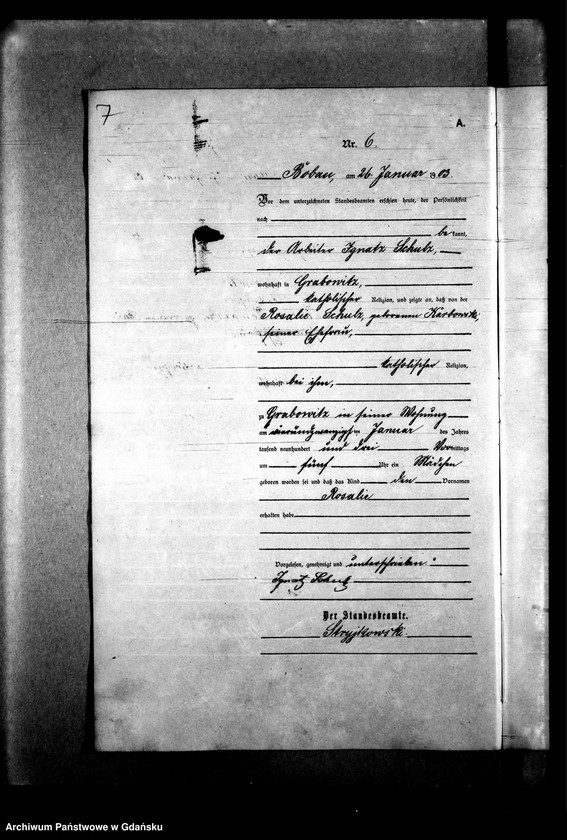 7
A.
Nr. 6.
Bobau, am 26. Januar 1903.
Vor dem unterzeichneten Standesbeamten erschien heute, der Persönlichkeit
nach
bekannt,
der Arbeiter Ignatz Schulz,
wohnhaft in Grabowitz,
katholischer Religion, und zeigte an, daß von der
Rosalie Schulz, geborenen Karbowski,
seiner Ehefrau,
katholischer Religion,
wohnhaft bei ihm,
zu Grabowitz in seiner Wohnung
am vierundzwanzigsten Januar des Jahres
tausend neunhundert und drei Vormittags
um fünf Uhr ein Mädchen
geboren worden sei und daß das Kind den Vornamen
Rosalie
erhalten habe
Vorgelesen, genehmigt und unterschrieben
Ignatz Schulz
Der Standesbeamte.
Stryjkowski.
Archiwum Państwowe w Gdańsku